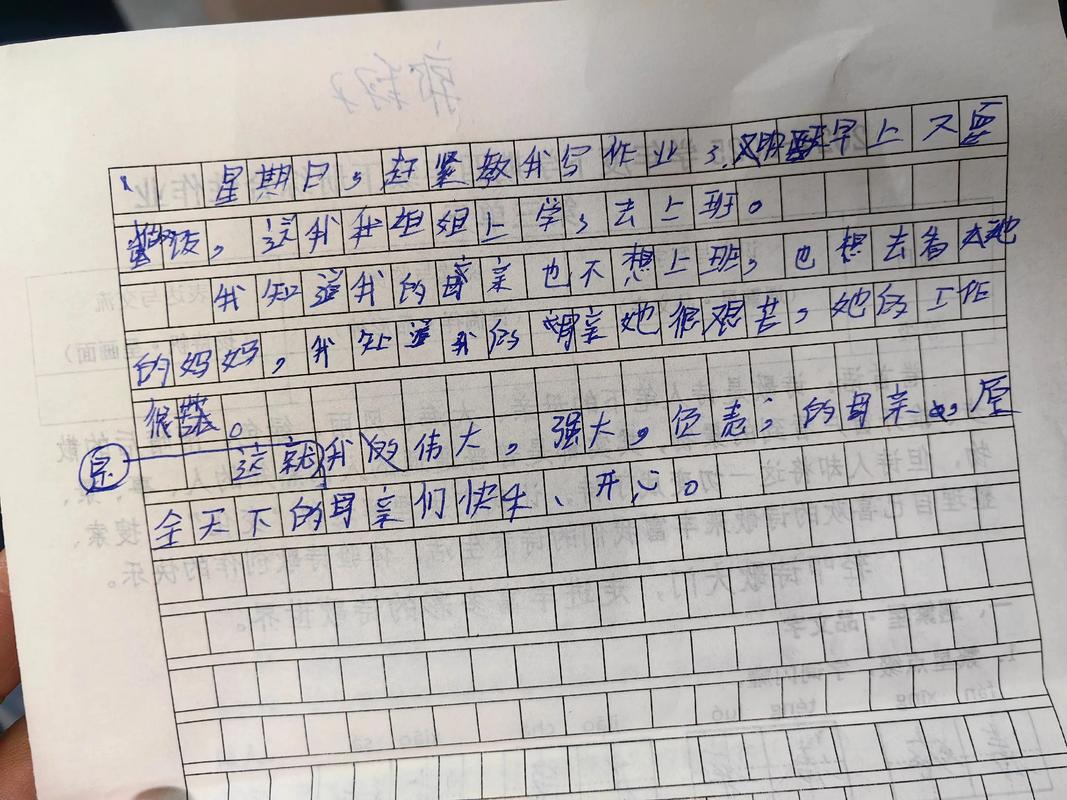 星期日，赶紧教我写作业，又明早上又要
做饭，送我和姐姐上学，去上班。
我知道我的母亲也不想上班，也想去看
的妈妈，我知道我的母亲她很艰苦，她的工作
很
这就是我的伟大，强大，负责；的母亲，愿
全天下的母亲们快乐、开心。